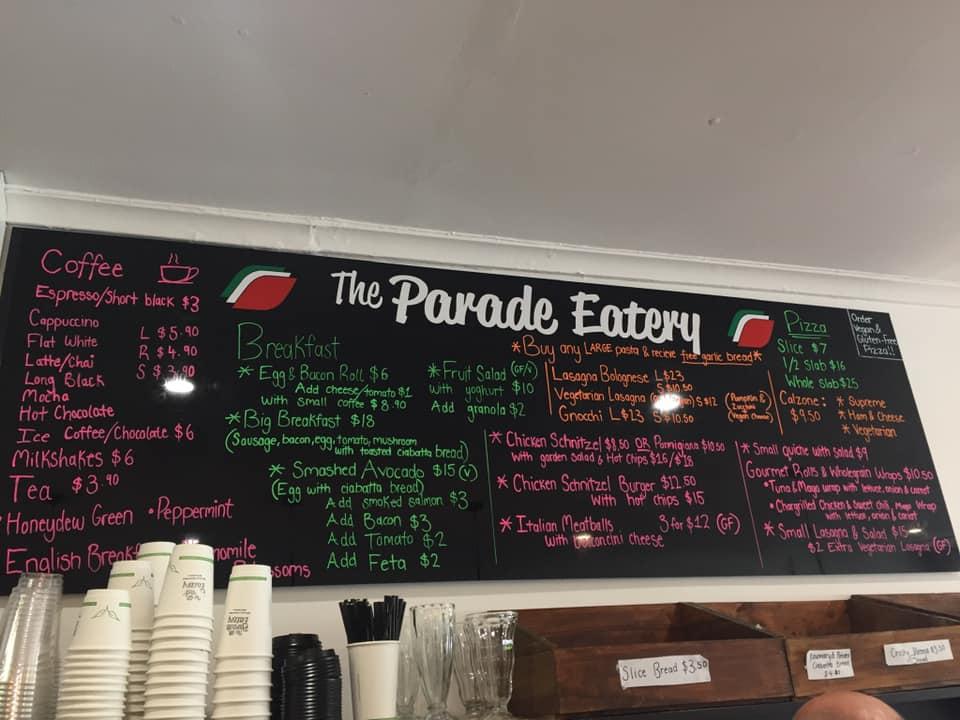 The Parade Eatery
Coffee
Espresso/Short black $3
Cappuccino
Flat White
Latte/Chai
Long Black
Mocha
Hot Chocolate
L $5.90
R $4.90
S $3.90
Ice Coffee/Chocolate $6
Milkshakes $6
Tea $3.90
Honeydew Green • Peppermint
English
Breakfast
* Egg & Bacon Roll $6
Add cheese/tomato $1
with small coffee $8.90
* Big Breakfast $18
(Sausage, bacon, egg, tomato, mushroom
with toasted ciabatta bread)
* Smashed Avocado $15 (V)
(Egg with ciabatta bread)
Add smoked salmon $3
Add Bacon $3
Add Tomato $2
Add Feta $2
* Fruit Salad (GF/V)
with yoghurt $10
Add granola $2
* Buy any LARGE pasta & recieve free garlic bread *
Lasagna Bolognese L $23
S $10.50
Vegetarian Lasagna S $12
(Pumpkin &
Zucchini
Vegan cheese)
Gnocchi L $23 S $10.50
* Chicken Schnitzel $8.50 OR Parmigiana $10.50
with garden Salad & Hot Chips $16/$18
* Chicken Schnitzel Burger $12.50
With hot chips $15
* Italian Meatballs 3 for $12 (GF)
with bocconcini cheese
Pizza
Slice $7
1/2 Slab $16
Whole Slab $25
Order
Vegan &
Gluten-Free
Pizza!!
Calzone:
$9.50
* Supreme
* Ham & Cheese
* Vegetarian
* Small quiche with salad $9
Gourmet Rolls & Wholegrain Wraps $10.50
• Tuna & Mayo wrap with lettuce, onion & carrot
• Chargrilled Chicken & Sweet chilli, Mayo Wrap
with lettuce, onion & carrot
* Small Lasagna & Salad $15
$2 Extra Vegetarian Lasagna (GF)
Slice Bread $3.50